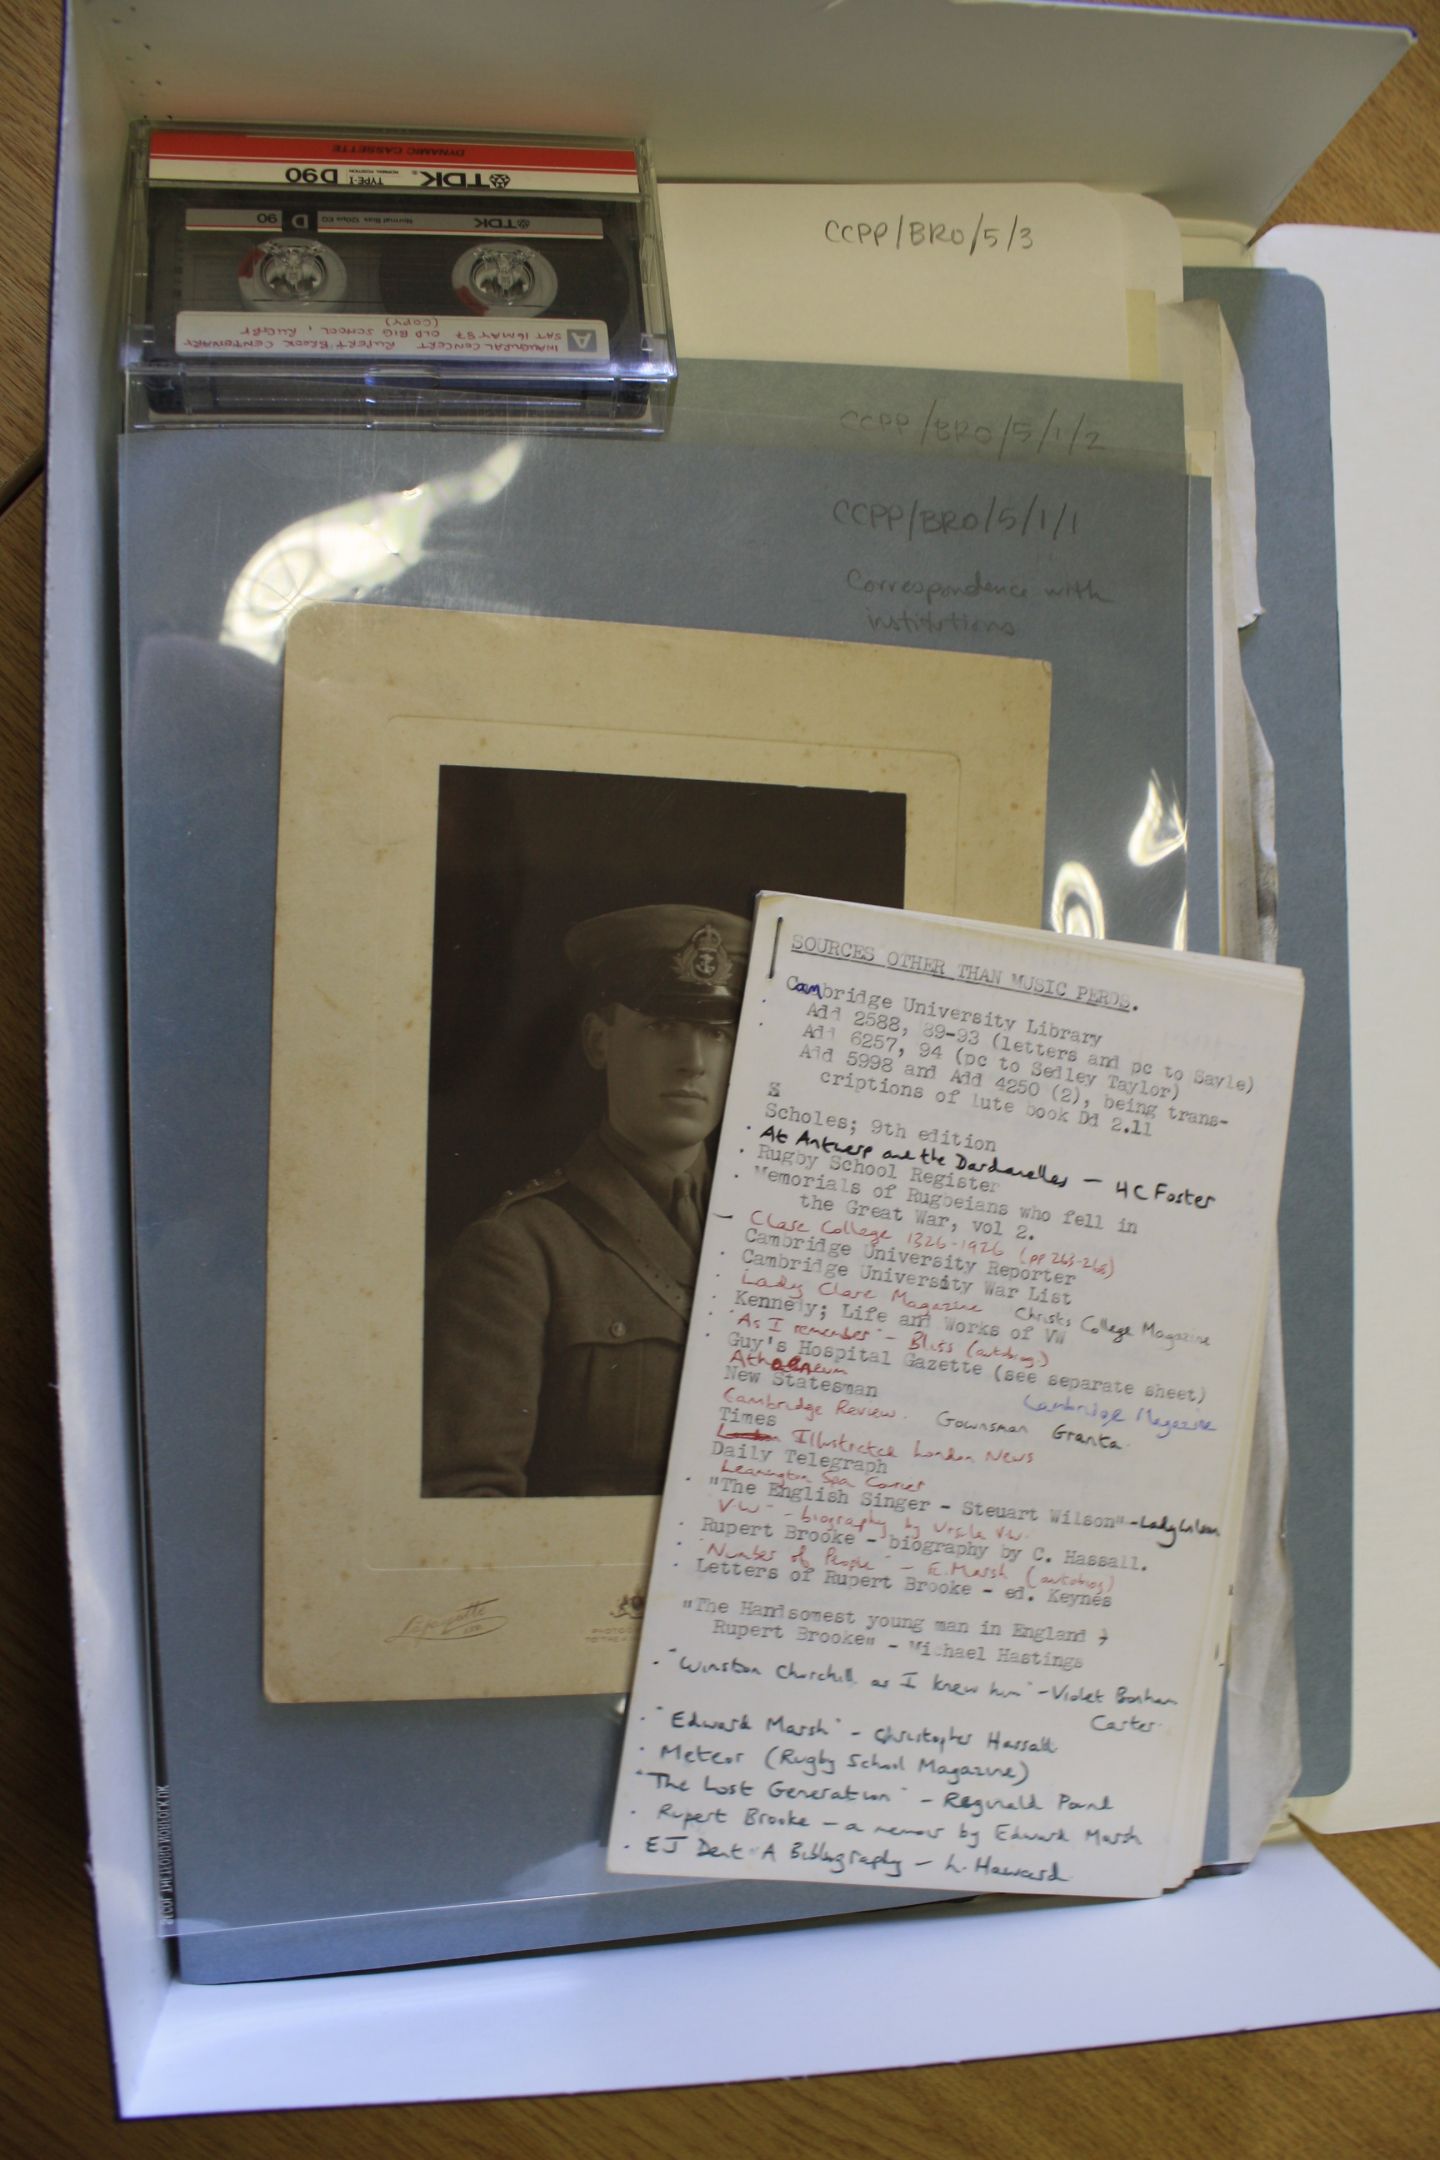 DYNAMIC CASSETTE
TDK TYPE I NORMAL POSITION D90
TDK Normal Bias 120µs EQ D 90
A
INAUGURAL CONCERT RUPERT BROOK CENTENARY
SAT 16 MAY 87 OLD BIG SCHOOL, RUGBY
(COPY)
CCPP/BRO/5/3
CCPP/BRO/5/1/2
CCPP/BRO/5/1/1
Correspondence with
institutions
Lafayette
LTD.
SOURCES OTHER THAN MUSIC PERDS.
Cambridge University Library
Add 2588, 89-93 (letters and pc to Sayle)
Add 6257, 94 (pc to Sedley Taylor)
Add 5998 and Add 4250 (2), being trans-
criptions of lute book Dd 2.11
Scholes; 9th edition
At Antwerp and the Dardanelles - HC Foster
Rugby School Register
Memorials of Rugbeians who fell in
the Great War, vol 2.
- Clare College 1326-1926 (pp 263-268)
Cambridge University Reporter
Cambridge University War List
Lady Clare Magazine Christs College Magazine
Kennedy; Life and Works of VW
"As I remember" - Bliss (autobiog.)
Guy's Hospital Gazette (see separate sheet)
Athenaeum
New Statesman Cambridge Magazine
Cambridge Review. Gownsman Granta.
Times
London Illustrated London News
Daily Telegraph
Leamington Spa Courier
"The English Singer - Steuart Wilson" - Lady Wilson
"VW" - biography by Ursula VW.
Rupert Brooke - biography by C. Hassall.
"Number of People" - E. Marsh (autobiog)
Letters of Rupert Brooke - ed. Keynes
"The Handsomest young man in England ;
Rupert Brooke" - Michael Hastings
"Winston Churchill as I knew him" - Violet Bonham
Carter.
"Edward Marsh" - Christopher Hassall.
Meteor (Rugby School Magazine)
"The Lost Generation" - Reginald Pound
Rupert Brooke - a memoir by Edward Marsh
EJ Dent "A Bibliography - L. Haward.